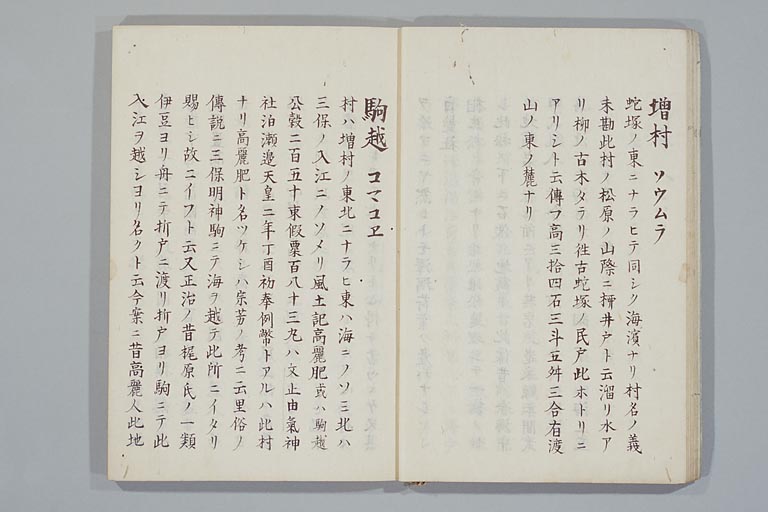 増村 ソウムラ
蛇塚ノ東ニナラヒテ同シク海濱ナリ村名ノ義
未勘此村ノ松原ノ山際ニ桺井戸ト云溜リ水ア
リ柳ノ古木タラリ徃古蛇塚ノ民戸此ホトリニ
アリシト云傳フ高三拾四石三斗五舛三合有渡
山ノ東ノ麓ナリ
駒越 コマコヱ
村ハ増村ノ東北ニナラヒ東ハ海ニノソミ北ハ
三保ノ入江ニノソメリ風土記高麗肥或ハ駒越
公穀二百五十束假粟百八十三丸ハ文止由氣神
社泊瀬邊天皇二年丁酉初奉例幣トアルハ此村
ナリ高麗肥ト名ツケシハ宗芳ノ考ニ云里俗ノ
傳説ニ三保明神駒ニテ海ヲ越テ此所ニイタリ
賜ヒシ故ニイフト云又正治ノ昔梶原氏ノ一類
伊豆ヨリ舟ニテ折戸ニ渡リ折戸ヨリ駒ニテ此
入江ヲ越シヨリ名クト云今案ニ昔高麗人此地